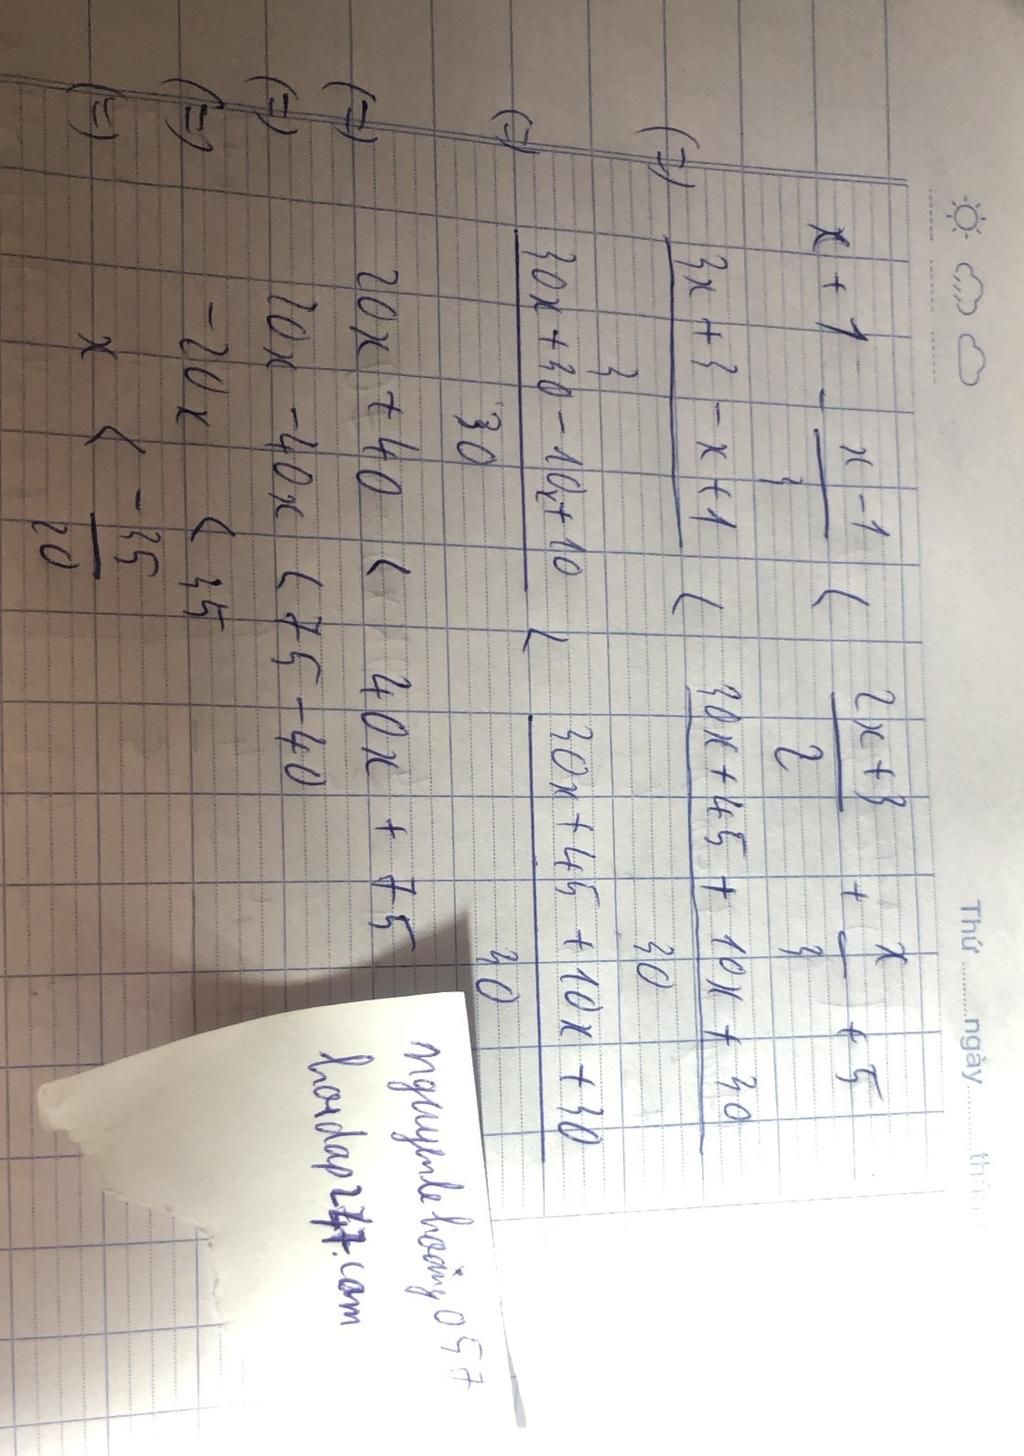 Thứ ........ ngày ........ thán
x + 1 - (x - 1)/3 < (2x + 3)/2 + x/3 + 5
(=) (3x + 3 - x + 1)/3 < (30x + 45 + 10x + 30)/30
(=) (30x + 30 - 10x + 10)/30 < (30x + 45 + 10x + 30)/30
(=) 20x + 40 < 40x + 75
(=) 20x - 40x < 75 - 40
(=) -20x < 35
(=) x > -35/20
nguyenlehoang057
hoidap247.com